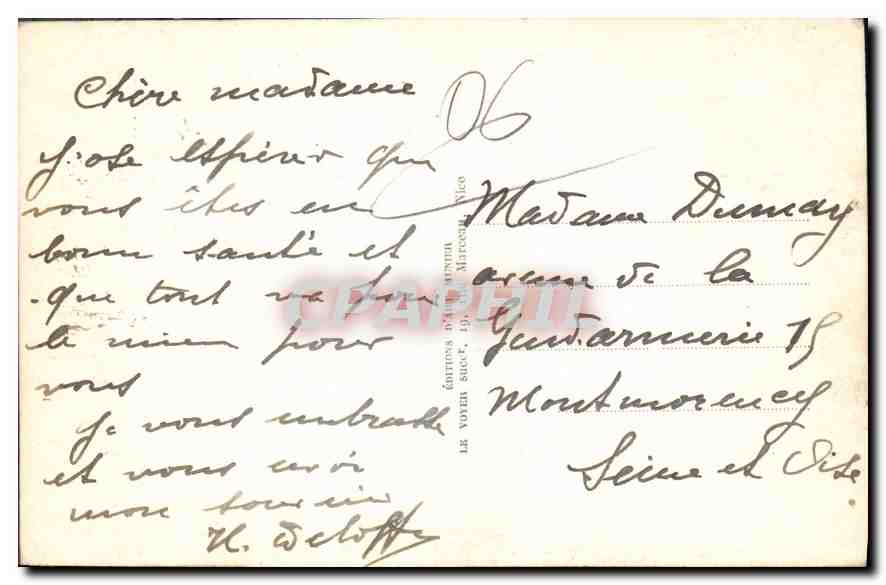 06
Chère madame
J'ose espérer que
vous êtes en
bonn santé et
que tout va pour
le mieu pour
vous
Je vous embrasse
et vous envoi
mon souvenir
ÉDITIONS D'ART MUNIER
LE VOYER succr, 19, Marceau, Nice
Madame Dumay
avenue de la
Gendarmerie 15
Montmorency
Seine et Oise
CPAPHIL